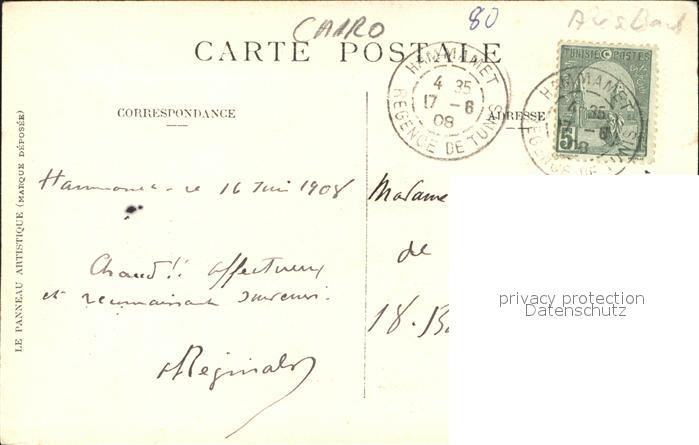 CAIRO
80
CARTE POSTALE
TUNISIE POSTES
5
HAMMAMET
4 35
17 - 6
08
REGENCE DE TUNIS
HAMMAMET
4 35
17 - 6
8
REGENCE DE TUNIS
CORRESPONDANCE
ADRESSE
LE PANNEAU ARTISTIQUE (MARQUE DÉPOSÉE)
Hammamet - le 16 Juin 1908
Chaud!! affectueux
et reconnaissant souvenir.
Reginald
Madame
de
18. B
privacy protection
Datenschutz